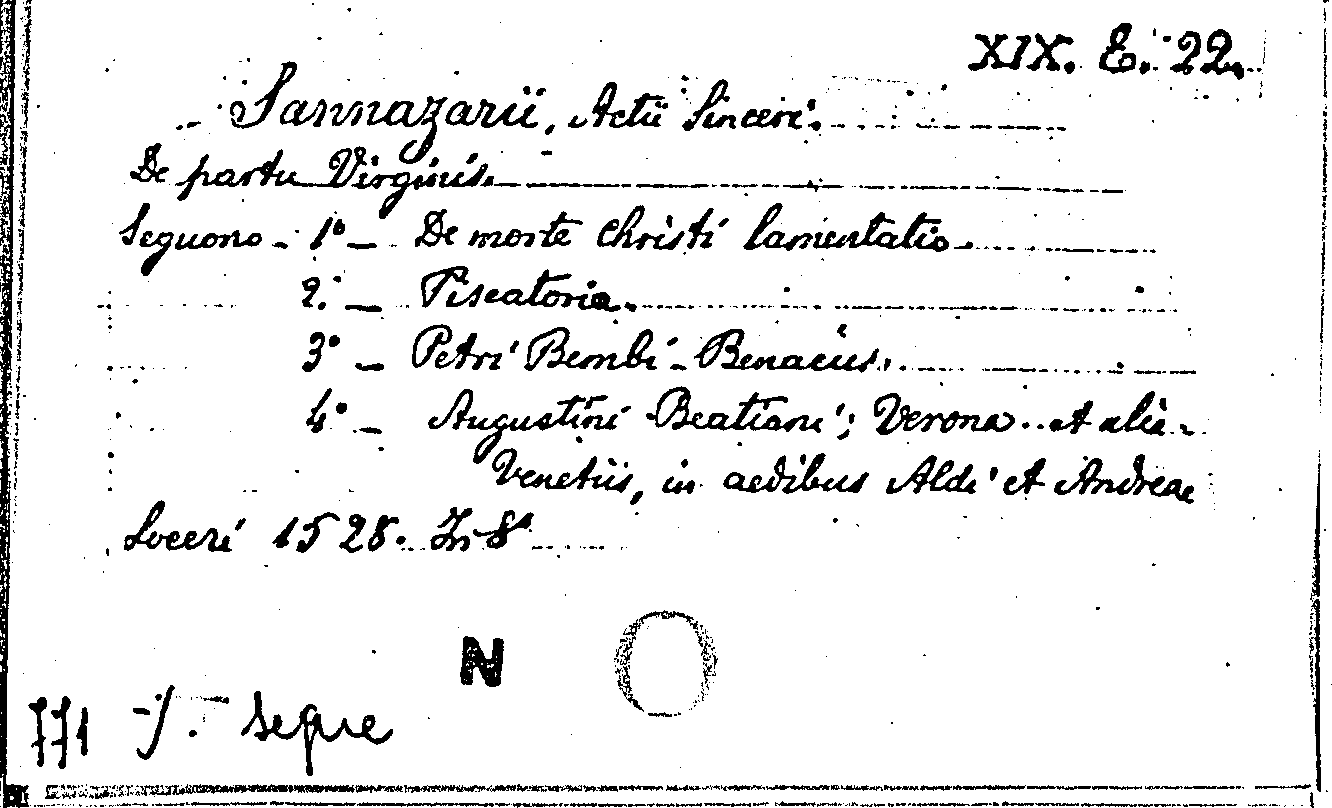 XIX. E. 22.
Sannazarii, Actii Sinceri.
De partu Virginis.
Seguono - 1° - De morte Christi lamentatio.
2° - Piscatoria.
3° - Petri Bembi - Benacus.
4° - Augustini Beatiani; Verona. et alia -
Venetiis, in aedibus Aldi et Andreae
Soceri 1528. In 8°
N
771 -/. segue